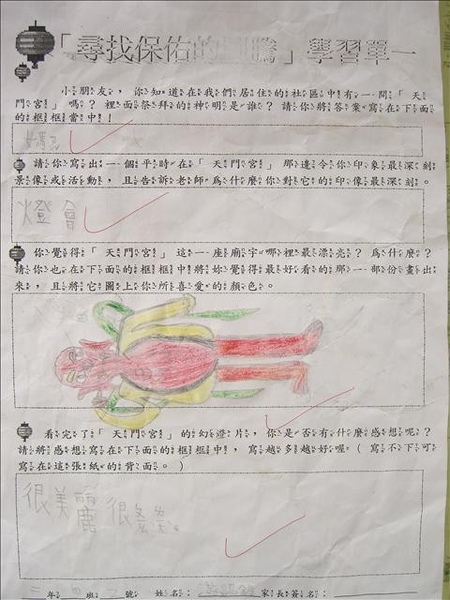 「尋找保佑的圖騰」學習單一
小朋友，你知道在我們居住的社區中有一間「天
門宮」嗎？裡面祭拜的神明是誰？請你將答案寫在下面
的框框當中！
請你寫出一個平時在「天門宮」那邊令你印象最深刻
景像或活動，且告訴老師為什麼你對它的印像最深刻。
燈會
你覺得「天門宮」這一座廟宇哪裡最漂亮？為什麼？
請你也在下面的框框中將妳覺得最好看的那一部份畫出
來，且將它圖上你所喜愛的顏色。
看完了「天門宮」的幻燈片，你是否有什麼感想呢？
請將感想寫在下面的框框中，寫越多越好喔（寫不下可
寫在這張紙的背面。）
很美麗很
年 班 號 姓名： 家長簽名：